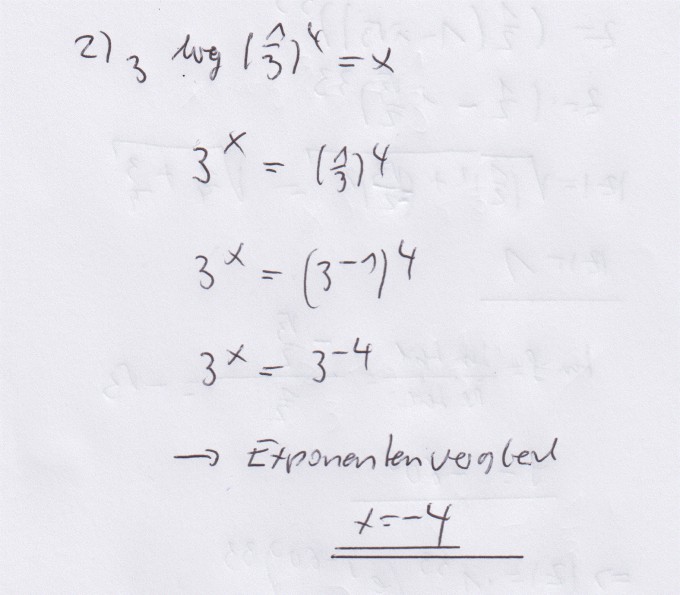 2) ₃ log (1/3)⁴ = x
3ˣ = (1/3)⁴
3ˣ = (3⁻¹)⁴
3ˣ = 3⁻⁴
→ Exponentenvergleich
x = -4